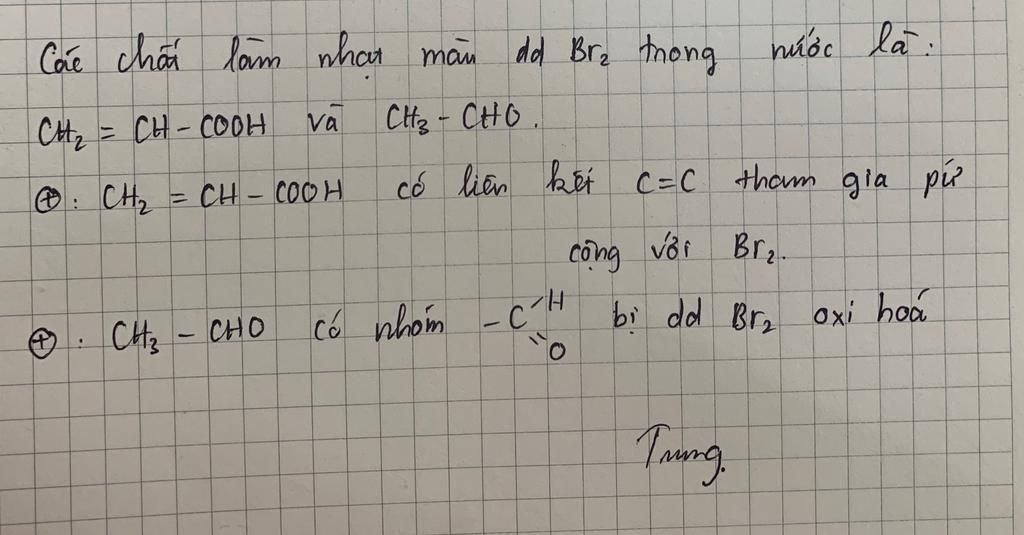 Các chất làm nhạt màu dd Br₂ trong nước là:
CH₂ = CH - COOH và CH₃ - CHO.
⊕: CH₂ = CH - COOH có liên kết C=C tham gia pứ
cộng với Br₂.
⊕: CH₃ - CHO có nhóm -C-H=O bị dd Br₂ oxi hoá
Trung.